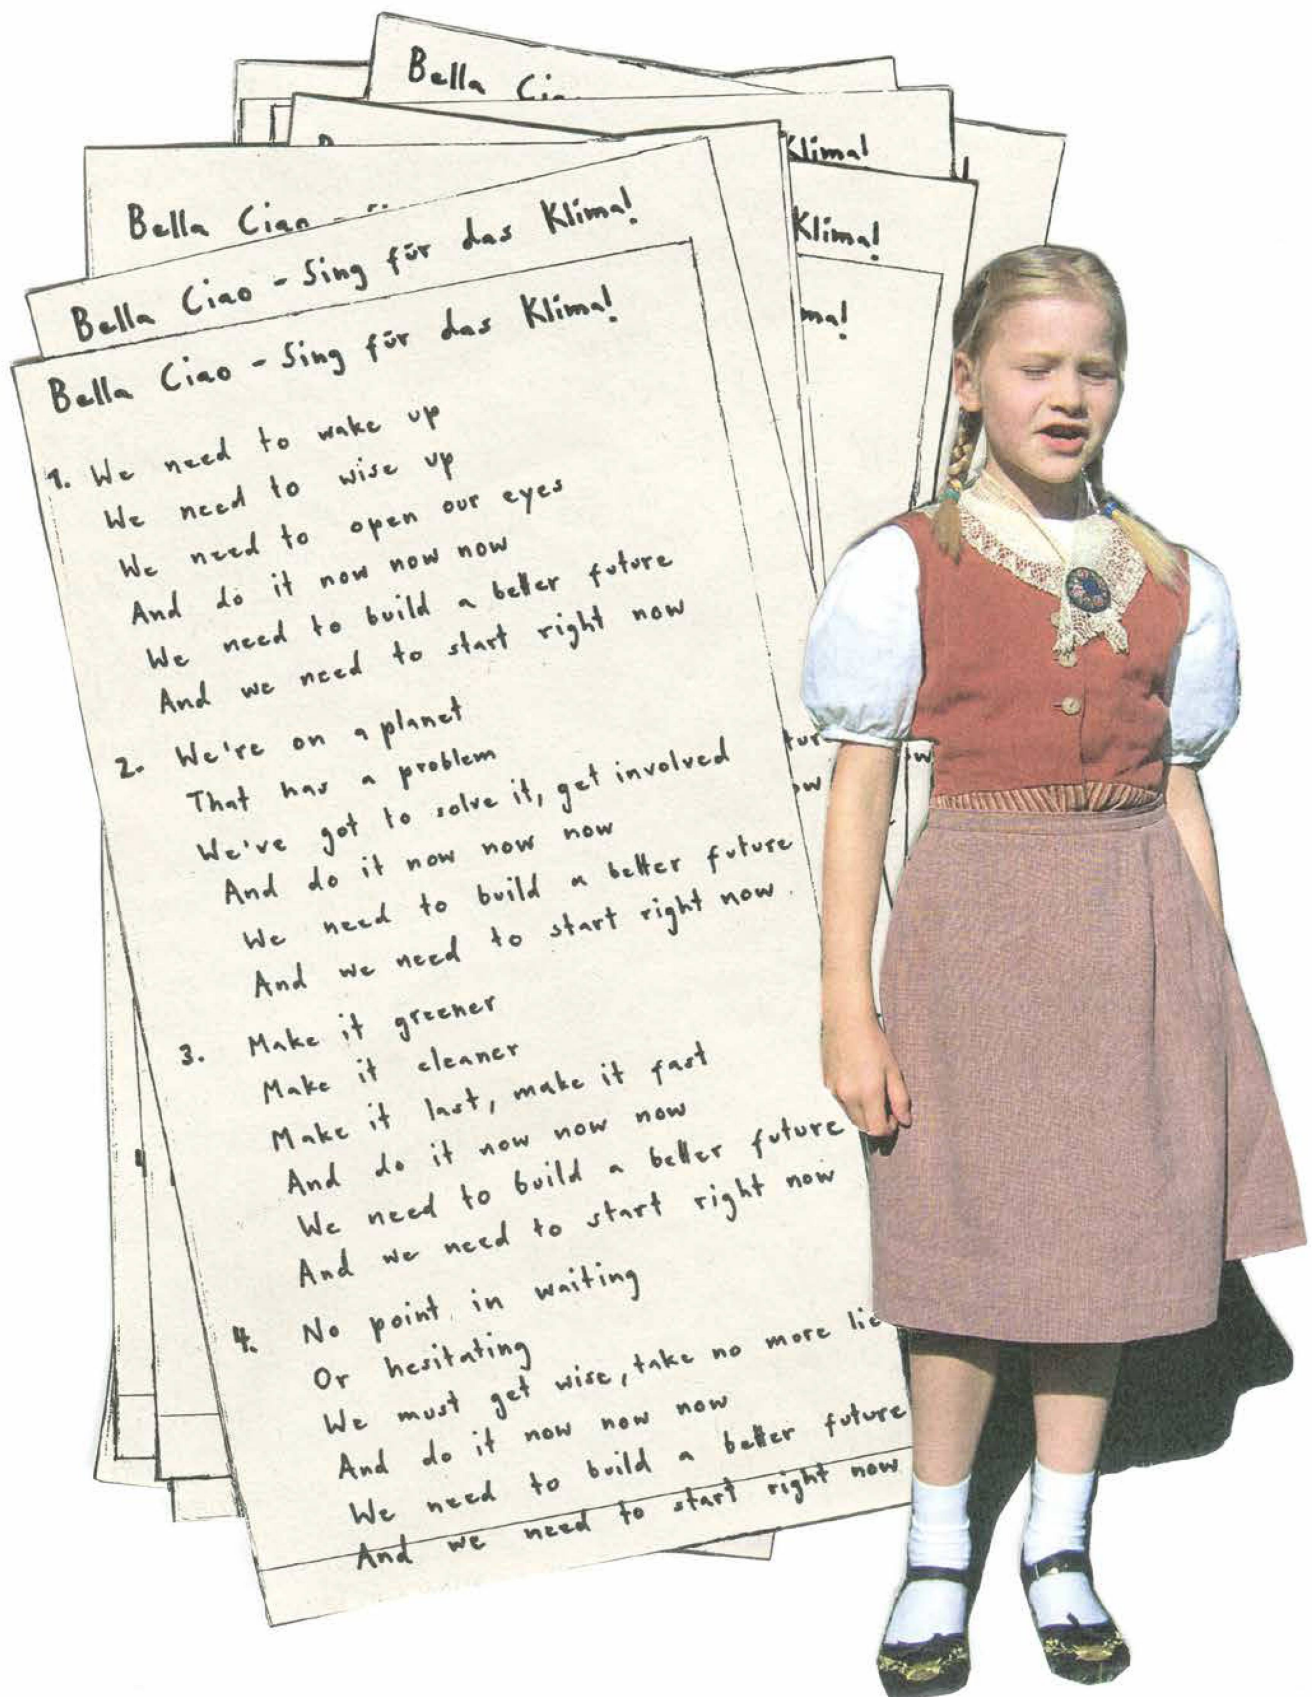 Bella Ci
Klima!
Bella Ciao -
Klima!
Bella Ciao - Sing für das Klima!
ma!
Bella Ciao - Sing für das Klima!
1. We need to wake up
We need to wise up
We need to open our eyes
And do it now now now
We need to build a better future
And we need to start right now
2. We're on a planet
That has a problem
We've got to solve it, get involved
And do it now now now
We need to build a better future
And we need to start right now.
3. Make it greener
Make it cleaner
Make it last, make it fast
And do it now now now
We need to build a better future
And we need to start right now
4. No point in waiting
Or hesitating
We must get wise, take no more lie
And do it now now now
We need to build a better future
And we need to start right now